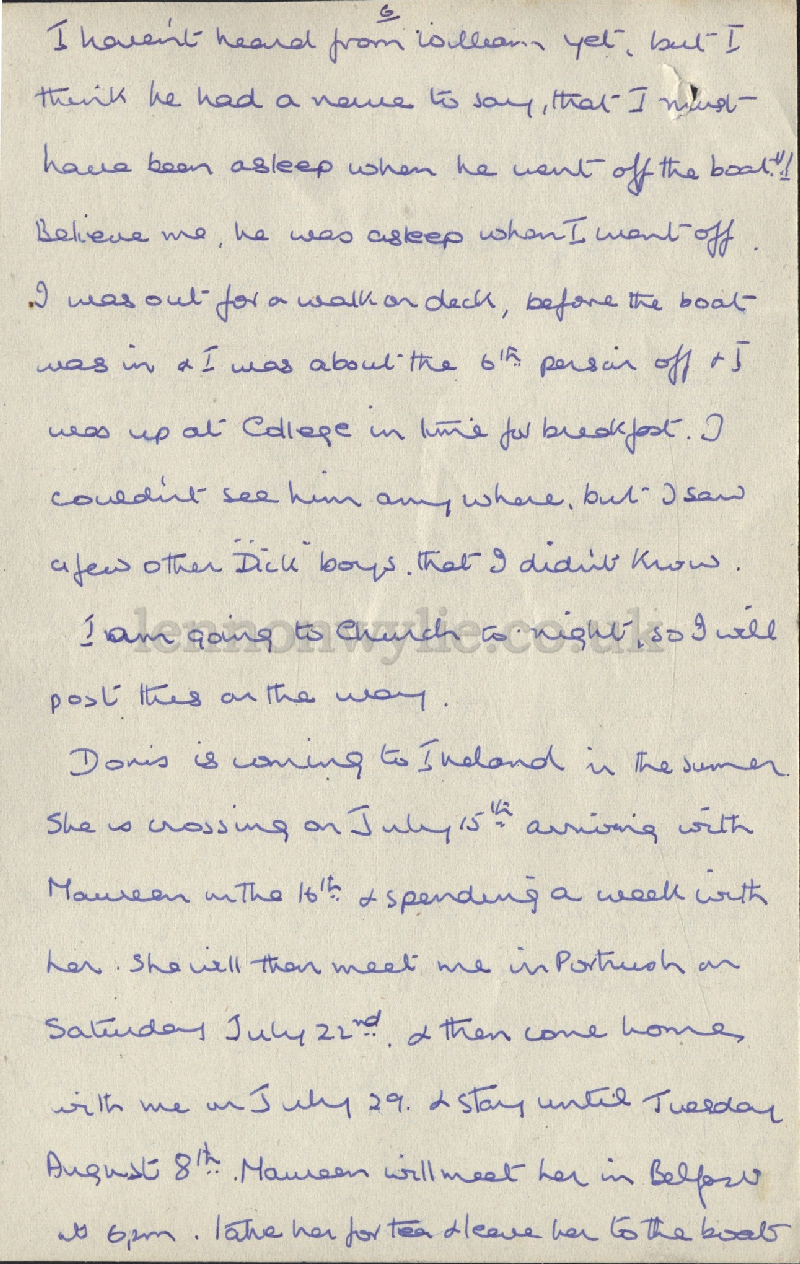 6
I haven't heard from William yet, but I
think he had a nerve to say, that I must
have been asleep when he went off the boat."!
Believe me, he was asleep when I went off.
I was out for a walk on deck, before the boat
was in & I was about the 6th person off & I
was up at College in time for breakfast. I
couldn't see him anywhere, but I saw
a few other "Dick" boys. that I didn't know.
I am going to Church to-night, so I will
post this on the way.
Doris is coming to Ireland in the summer.
She is crossing on July 15th arriving with
Maureen on the 16th & spending a week with
her. She will then meet me in Portrush on
Saturday July 22nd. & then come home,
with me on July 29. & stay until Tuesday
August 8th. Maureen will meet her in Belfast
at 6pm. take her for tea & leave her to the boat
lennonwylie.co.uk